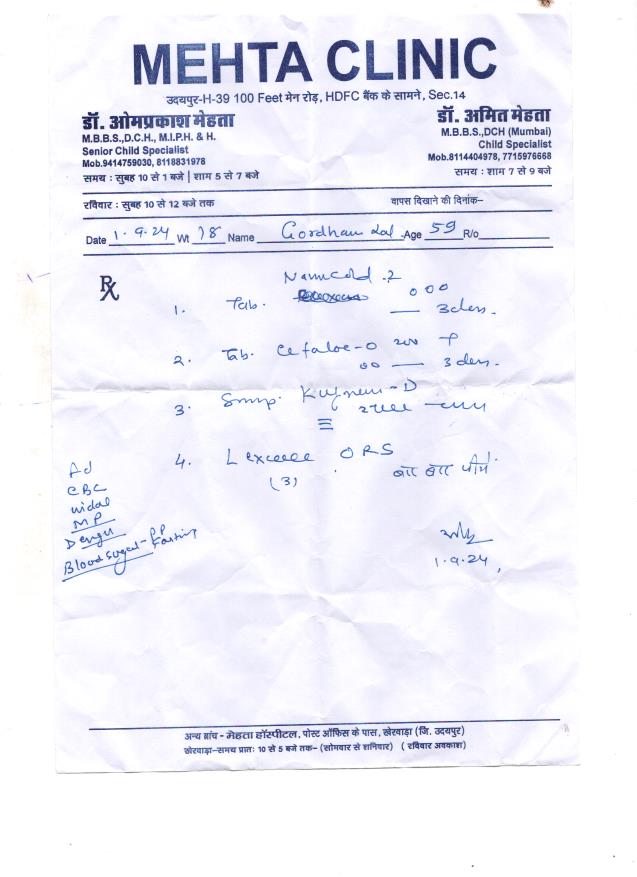 MEHTA CLINIC
उदयपुर-H-39 100 Feet मेन रोड़, HDFC बैंक के सामने, Sec.14
डॉ. ओमप्रकाश मेहता
M.B.B.S.,D.C.H., M.I.P.H. & H.
Senior Child Specialist
Mob.9414759030, 8118831978
समय : सुबह 10 से 1 बजे | शाम 5 से 7 बजे
डॉ. अमित मेहता
M.B.B.S.,DCH (Mumbai)
Child Specialist
Mob.8114404978, 7715976668
समय : शाम 7 से 9 बजे
रविवार : सुबह 10 से 12 बजे तक वापस दिखाने की दिनांक-
Date 1.9.24 Wt 78 Name Gordhan Lal Age 59 R/o
Rx
1. Tab. Namcold.2
000 — 3 days.
2. Tab. 200
00 — 3 days.
3. Syrup. -D
4. ORS
(3) बार बार पीये
Ad
CBC
widal
MP
Dengu
Blood sugar - PP
Fasting
1.9.24
अन्य ब्रांच - मेहता हॉस्पीटल, पोस्ट ऑफिस के पास, खेरवाड़ा (जि. उदयपुर)
खेरवाड़ा-समय प्रातः 10 से 5 बजे तक- (सोमवार से शनिवार) ( रविवार अवकाश)